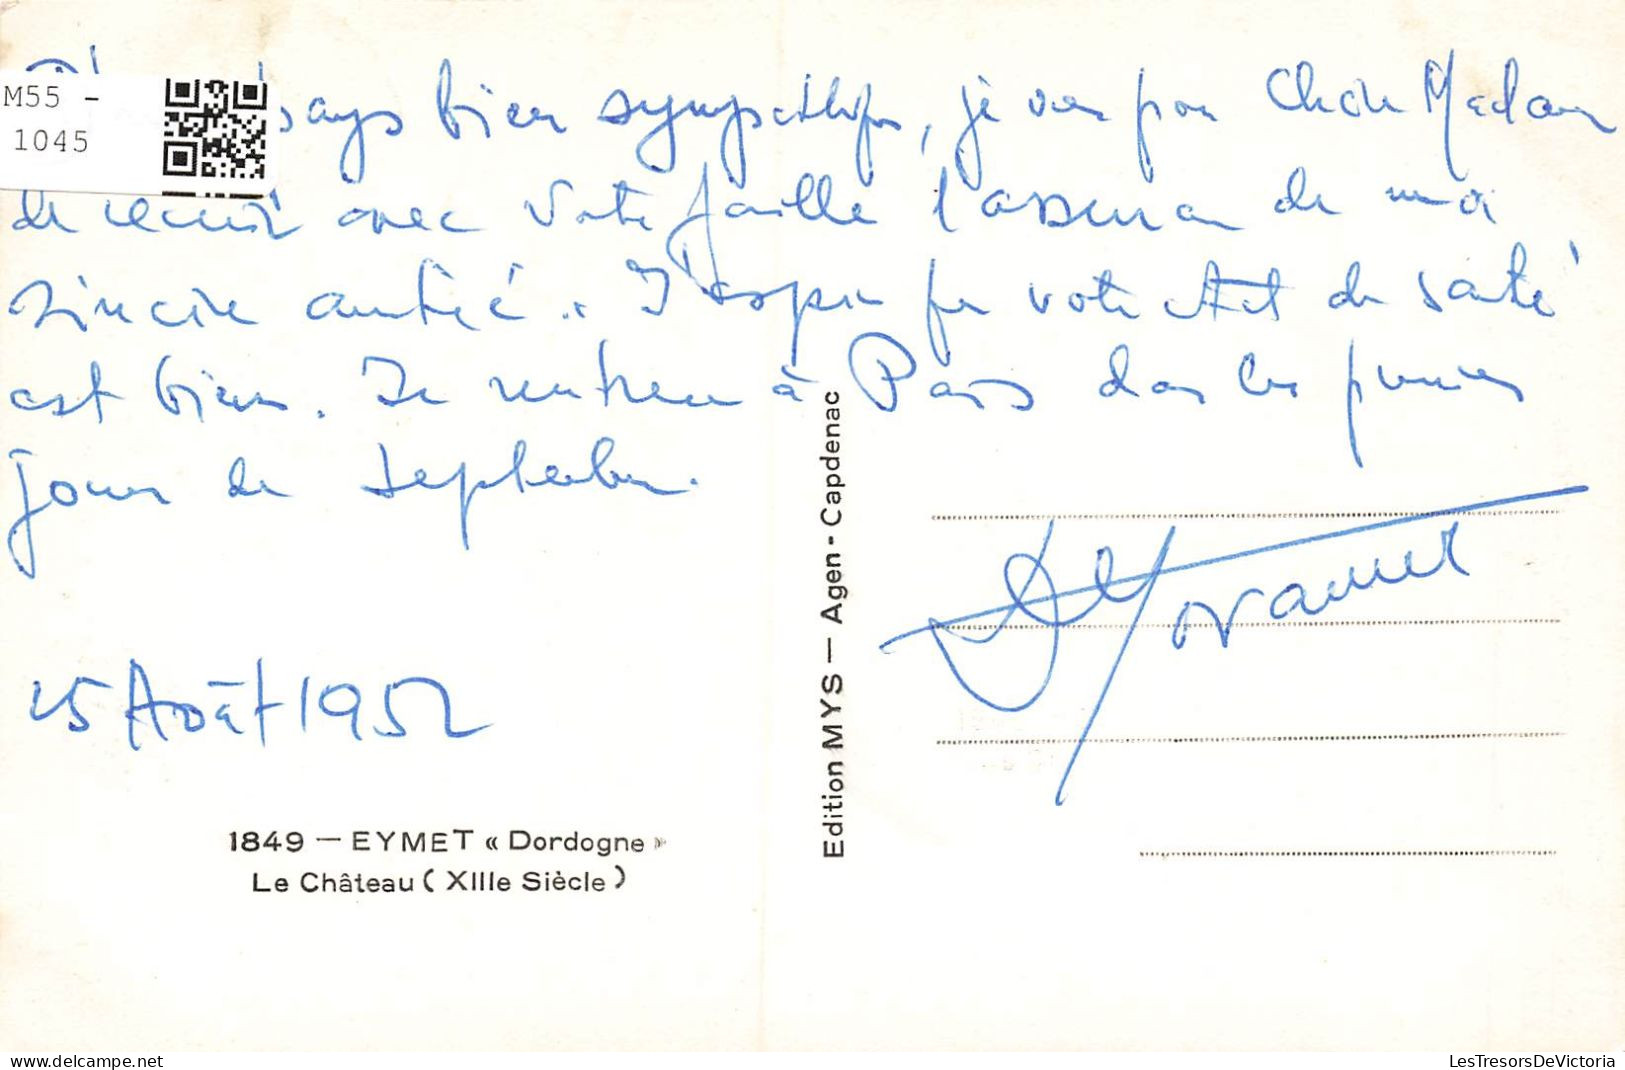 M55 -
1045
pays bien sympathique, je vous prie Chère Madame
de recevoir avec votre famille l'assurance de ma
sincère amitié. J'espère que votre état de santé
est bien. Je rentrerai à Paris dans les premiers
jours de septembre.
15 Août 1952
1849 — EYMET « Dordogne »
Le Château ( XIIIe Siècle )
Edition MYS — Agen - Capdenac
delcampe.net
LesTresorsDeVictoria